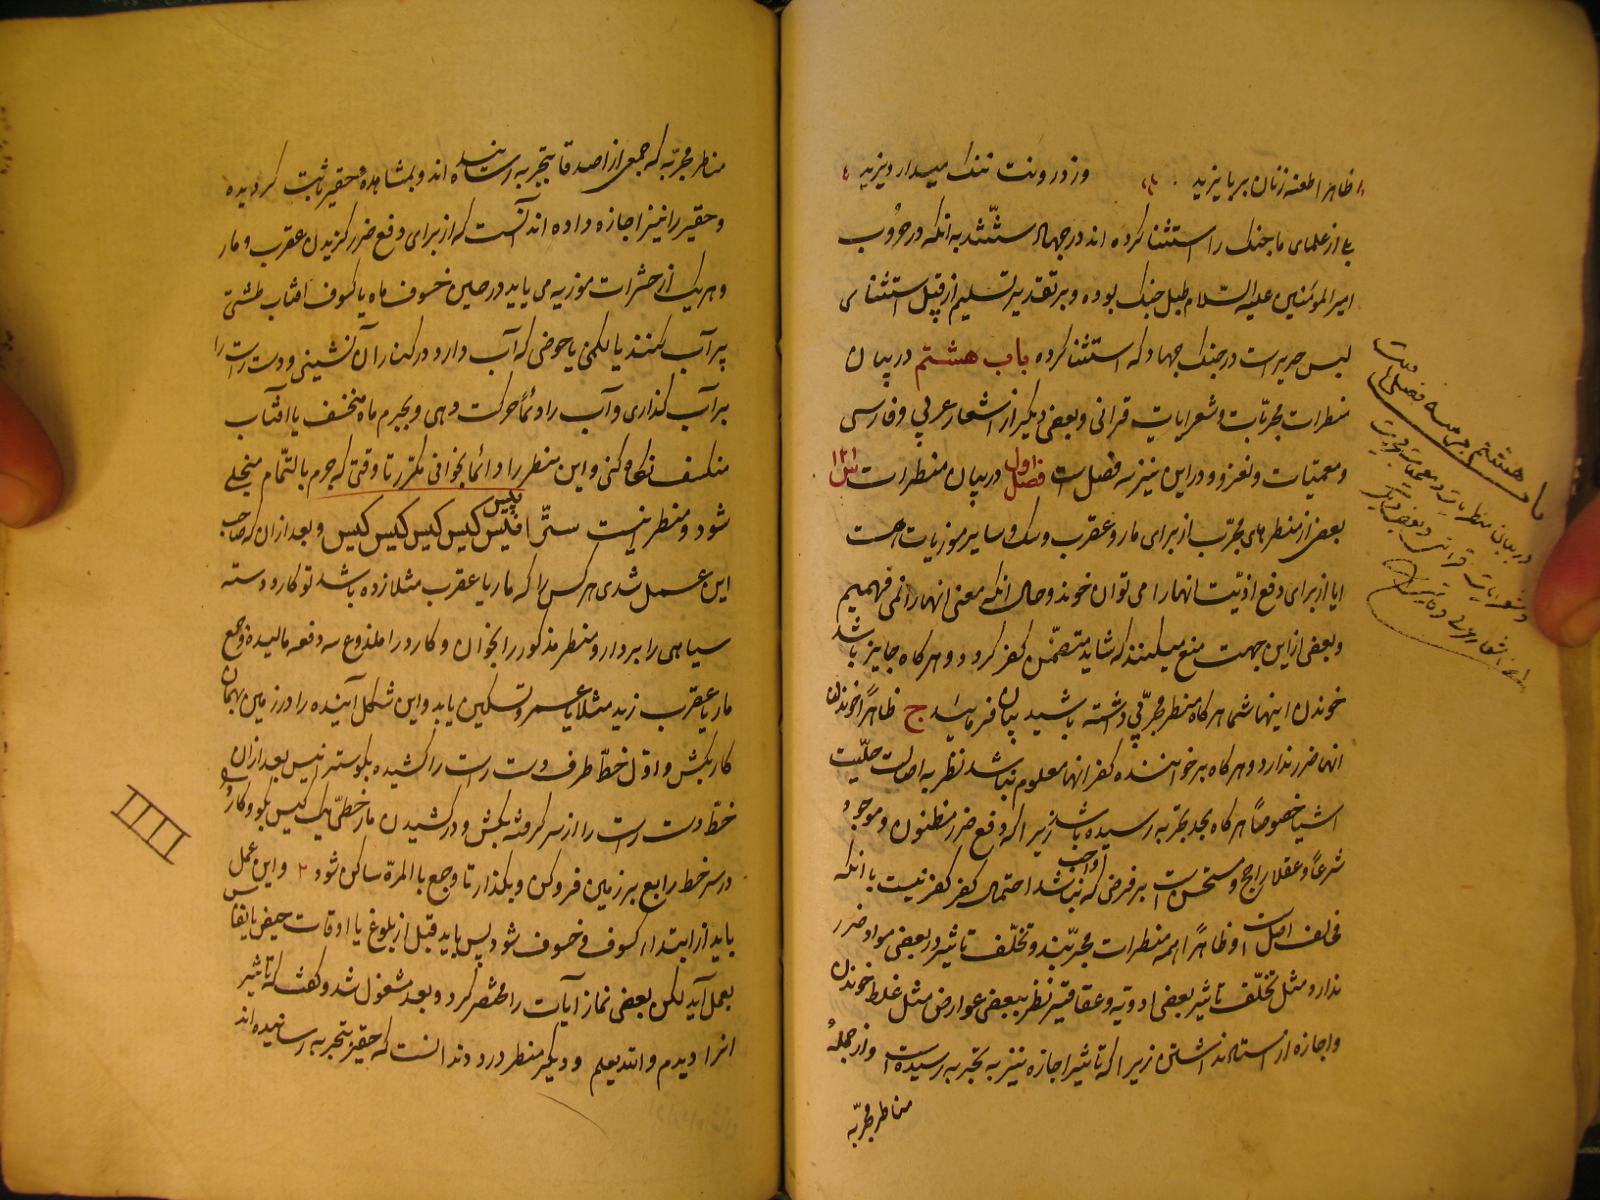 ظاهرا طعنه زنان بر بایزید وز درونت ننک میدارد یزید
از علمای ما جنک را استثنا کرده اند در جهاد استثنا شد به آنکه در حروب
امیر المؤمنین علیه السّلام طبل جنک بوده و بر تقدیر تسلیم از قبیل استثنای
لبس حریرست در جنک جهاد که استثنا کرده باب هشتم در بیان
منطرات مجرّبات و شعر ایات قرانی و بعضی دیکر از اشعار عربی و فارسی
و معمّیات و لغز و در این نیز سه فصل است فصل اول در بیان منطرات س ۱۲۱
بعضی از منطرهای مجرّب از برای مار و عقرب و سک و سایر موزیات هست
ایا از برای دفع اذیّت انها را می توان خوند و حال انکه معنی انها را نمی فهمیم
و بعضی از این جهت منع میکنند که شاید متضمّن کفر کردد و هر کاه جایز باشد
خوندن اینها شما هر کاه منطر مجرّبی داشته باشید بیان فرمایید ج ظاهراً خوندن
انها ضرر ندارد و هر کاه بر خواننده کفر انها معلوم نباشد نظر به اصالت حلّیت
اشیا خصوصاً هر کاه بحد تجربه رسیده باشد زیرا که دفع ضرر مظنون و موجود
شرعاً و عقلا راجح و مستحسن است بر فرضی که واجب نباشد احتمال کفر کفر نیست با انکه
مخالف اصل است و ظاهراً همه منطرات مجرّبند و تخلّف تاثیر در بعضی مواد ضرر
ندارد مثل تخلّف تاثیر بعضی ادویه و عقاقیر نظر ببعضی عوارض مثل غلط خوندن
و اجازه از استاد نداشتن زیرا که تاثیر اجازه نیز به تجربه رسیده است و از جملهٔ
مناطر مجرّبه
باب هشتم بر سه فصل است
در بیان منطرات و معمیات مجربات
و شعر ایات قرانی و بعضی دیکر
از اشعار عربی و فارسی
مناطر مجرّبه که جمعی از اصدقا بتجربه رسانیده اند و بمشاهده حقیر ثابت کردیده
و حقیر را نیز اجازه داده اند آنست که از برای دفع ضرر کزیدن عقرب و مار
و هر یک از حشرات موزیه می باید در حین خسوف ماه یا کسوف افتاب طشتی
پر آب کنند یا لکنی یا حوضی که آب دارد در کنار آن نشینی و دست راست را
بر آب کذاری و آب را دائماً حرکت دهی و بجرم ماه منخسف یا افتاب
منکسف نکاه کنی و این منطر را دائما بخوانی مکرّر تا وقتی که جرم بالتّمام منجلی
شود و منطر اینست ستّی افیس پیس کیس کیس کیس کیس و بعد از ان که صاحب
این عمل شدی هر کس را که مار یا عقرب مثلا زده باشد تو کارد دسته
سیاهی را بردار و منطر مذکور را بخوان و کارد را ملذوع سه دفعه مالیده وجع
مار یا عقرب زید مثلا یا عمرو تسکین یابد و این شکل آینده را در زمین بهمان
کارد بکش و اوّل خطّ طرف دست راست را کشیده بکو ستر نیس بعد از ان
خطّ دست راست را از سر کرفته بکش و در کشیدن هر خطّی یک کیس بکو و کارد را
در سر خط رابع بر زمین فرو کن و بکذار تا وجع بالمرّة ساکن شود و این عمل
باید از ابتداء کسوف و خسوف شود پس باید قبل از بلوغ یا اوقات حیض یا نفاس
بعمل آید لکن بعضی نماز آیات را مختصر کرد و بعد مشغول شد و کفت که تاثیر
انرا دیدم و الله یعلم و دیکر منطر درد دندانست که حقیر بتجربه رسانیده اند